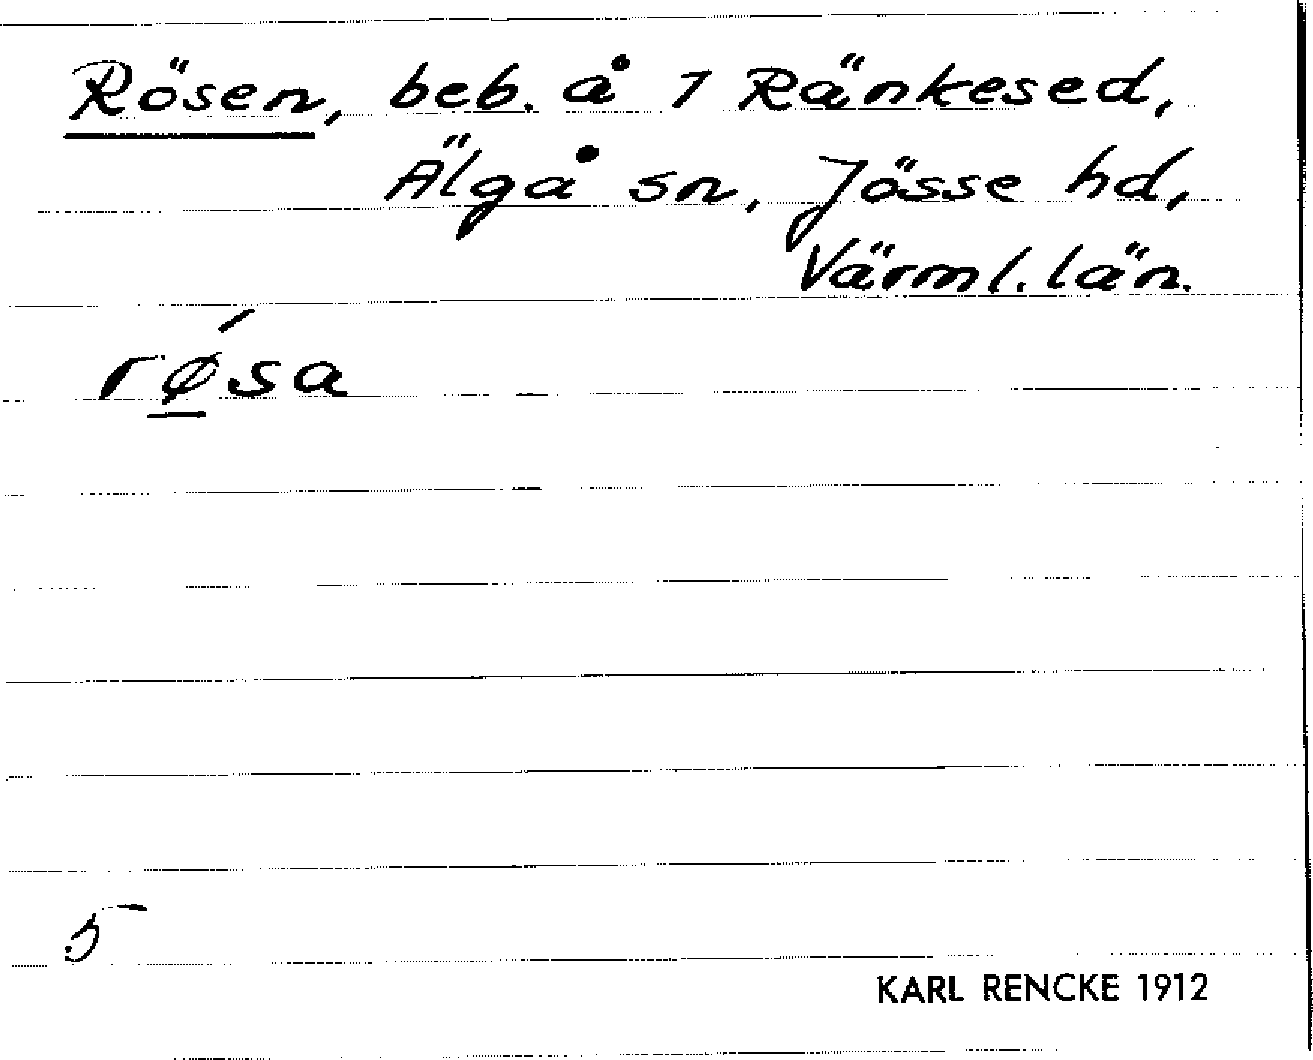 Rösen, beb. å 1 Ränkesed,
Älgå sn, Jösse hd,
Värml. län.
rǿ̲sa
5
KARL RENCKE 1912